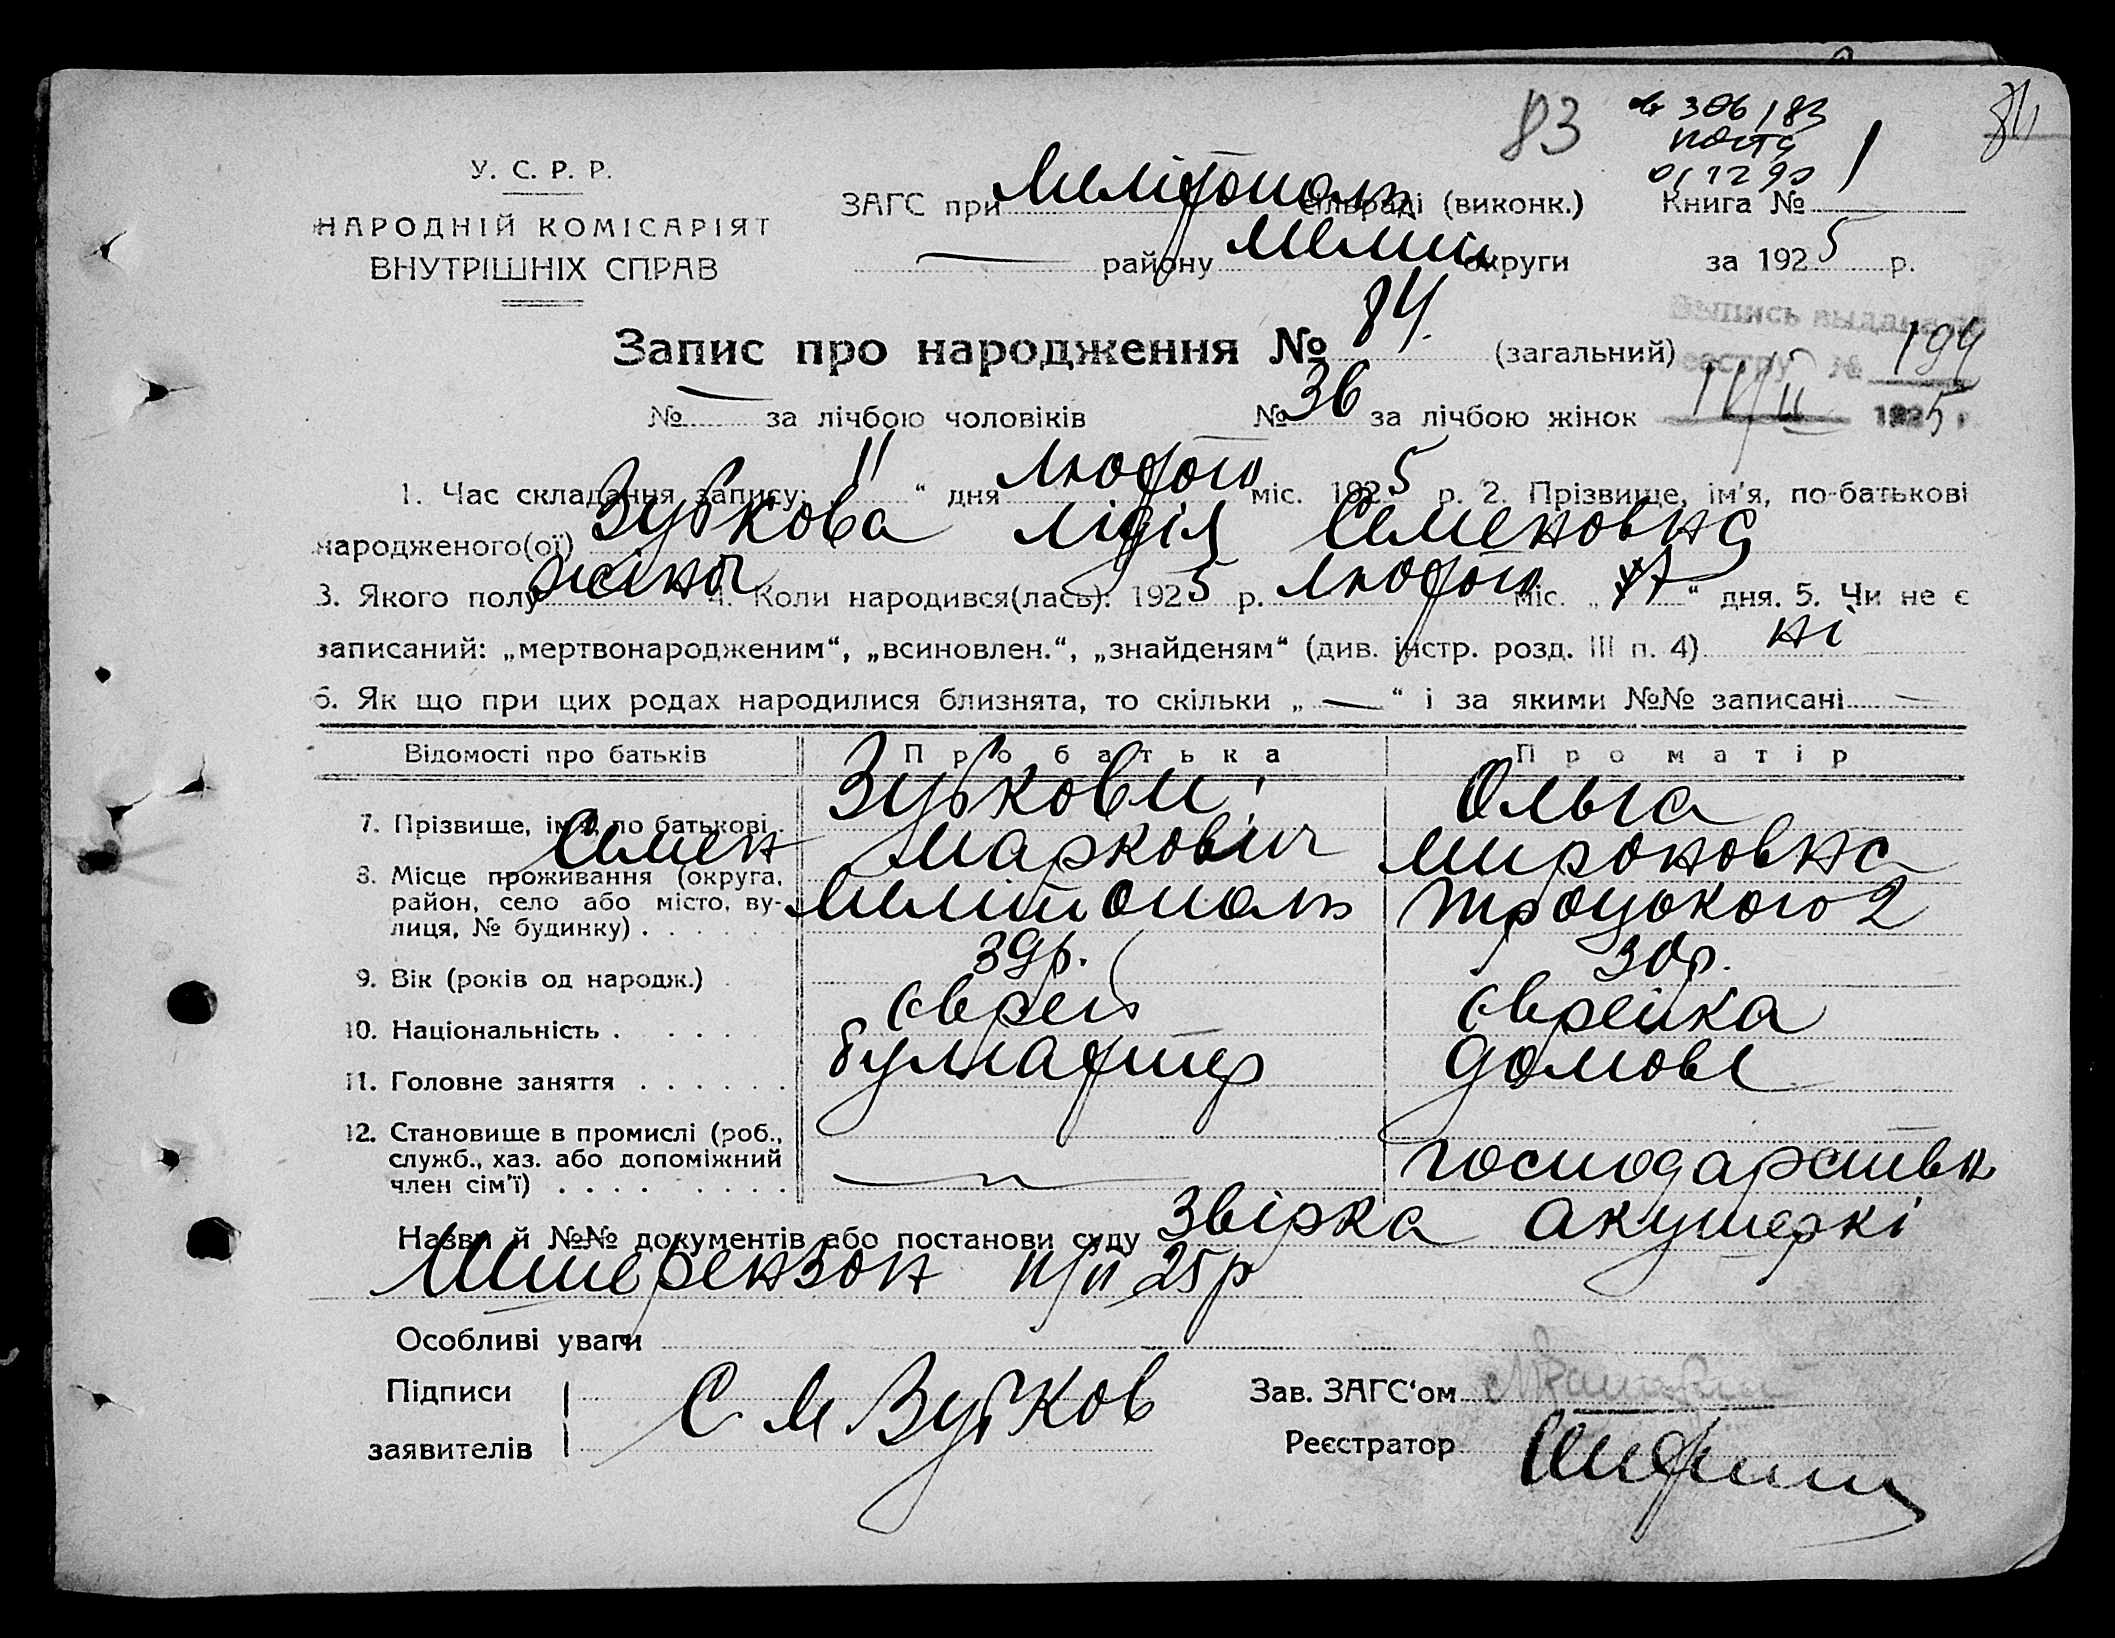 83
св 306/83
пошта
011290
84
У. С. Р. Р.
НАРОДНІЙ КОМІСАРІЯТ
ВНУТРІШНІХ СПРАВ
ЗАГС при Мелітополь сільраді (виконк.) Книга № 1
— району Меліт округи за 1925 р.
Выпись выдана по
реестру № 194
11/II 1925 г.
Запис про народження № 84. (загальний)
№ — за лічбою чоловіків № 36 за лічбою жінок
1. Час складання запису: „11“ дня лютого міс. 1925 р. 2. Прізвище, ім'я, по-батькові
народженого(ої) Зубкова Лідія Семеновна
3. Якого полу жіноч 4. Коли народився(лась): 1925 р. лютого міс. „7“ дня. 5. Чи не є
записаний: „мертвонародженим“, „всиновлен.“, „знайденям“ (див. інстр. розд. III п. 4) ні
6. Як що при цих родах народилися близнята, то скільки „—“ і за якими №№ записані —
Відомості про батьків Про батька Про матір
7. Прізвище, ім'я, по батькові Зубкови: Семен Маркович Ольга Мироновна
8. Місце проживання (округа,
район, село або місто, ву-
лиця, № будинку) Мелітополь Троцького 2
9. Вік (років од народж.) 39р. 30р.
10. Національність єврей єврейка
11. Головне заняття булгафтер домове
12. Становище в промислі (роб.,
служб., хаз. або допоміжний
член сім'ї) — господарство
Назва й №№ документів або постанови суду Звірка акушеркі
11/II 25р
Особливі уваги
Підписи
заявителів С М Зубков
Зав. ЗАГС'ом
Реєстратор